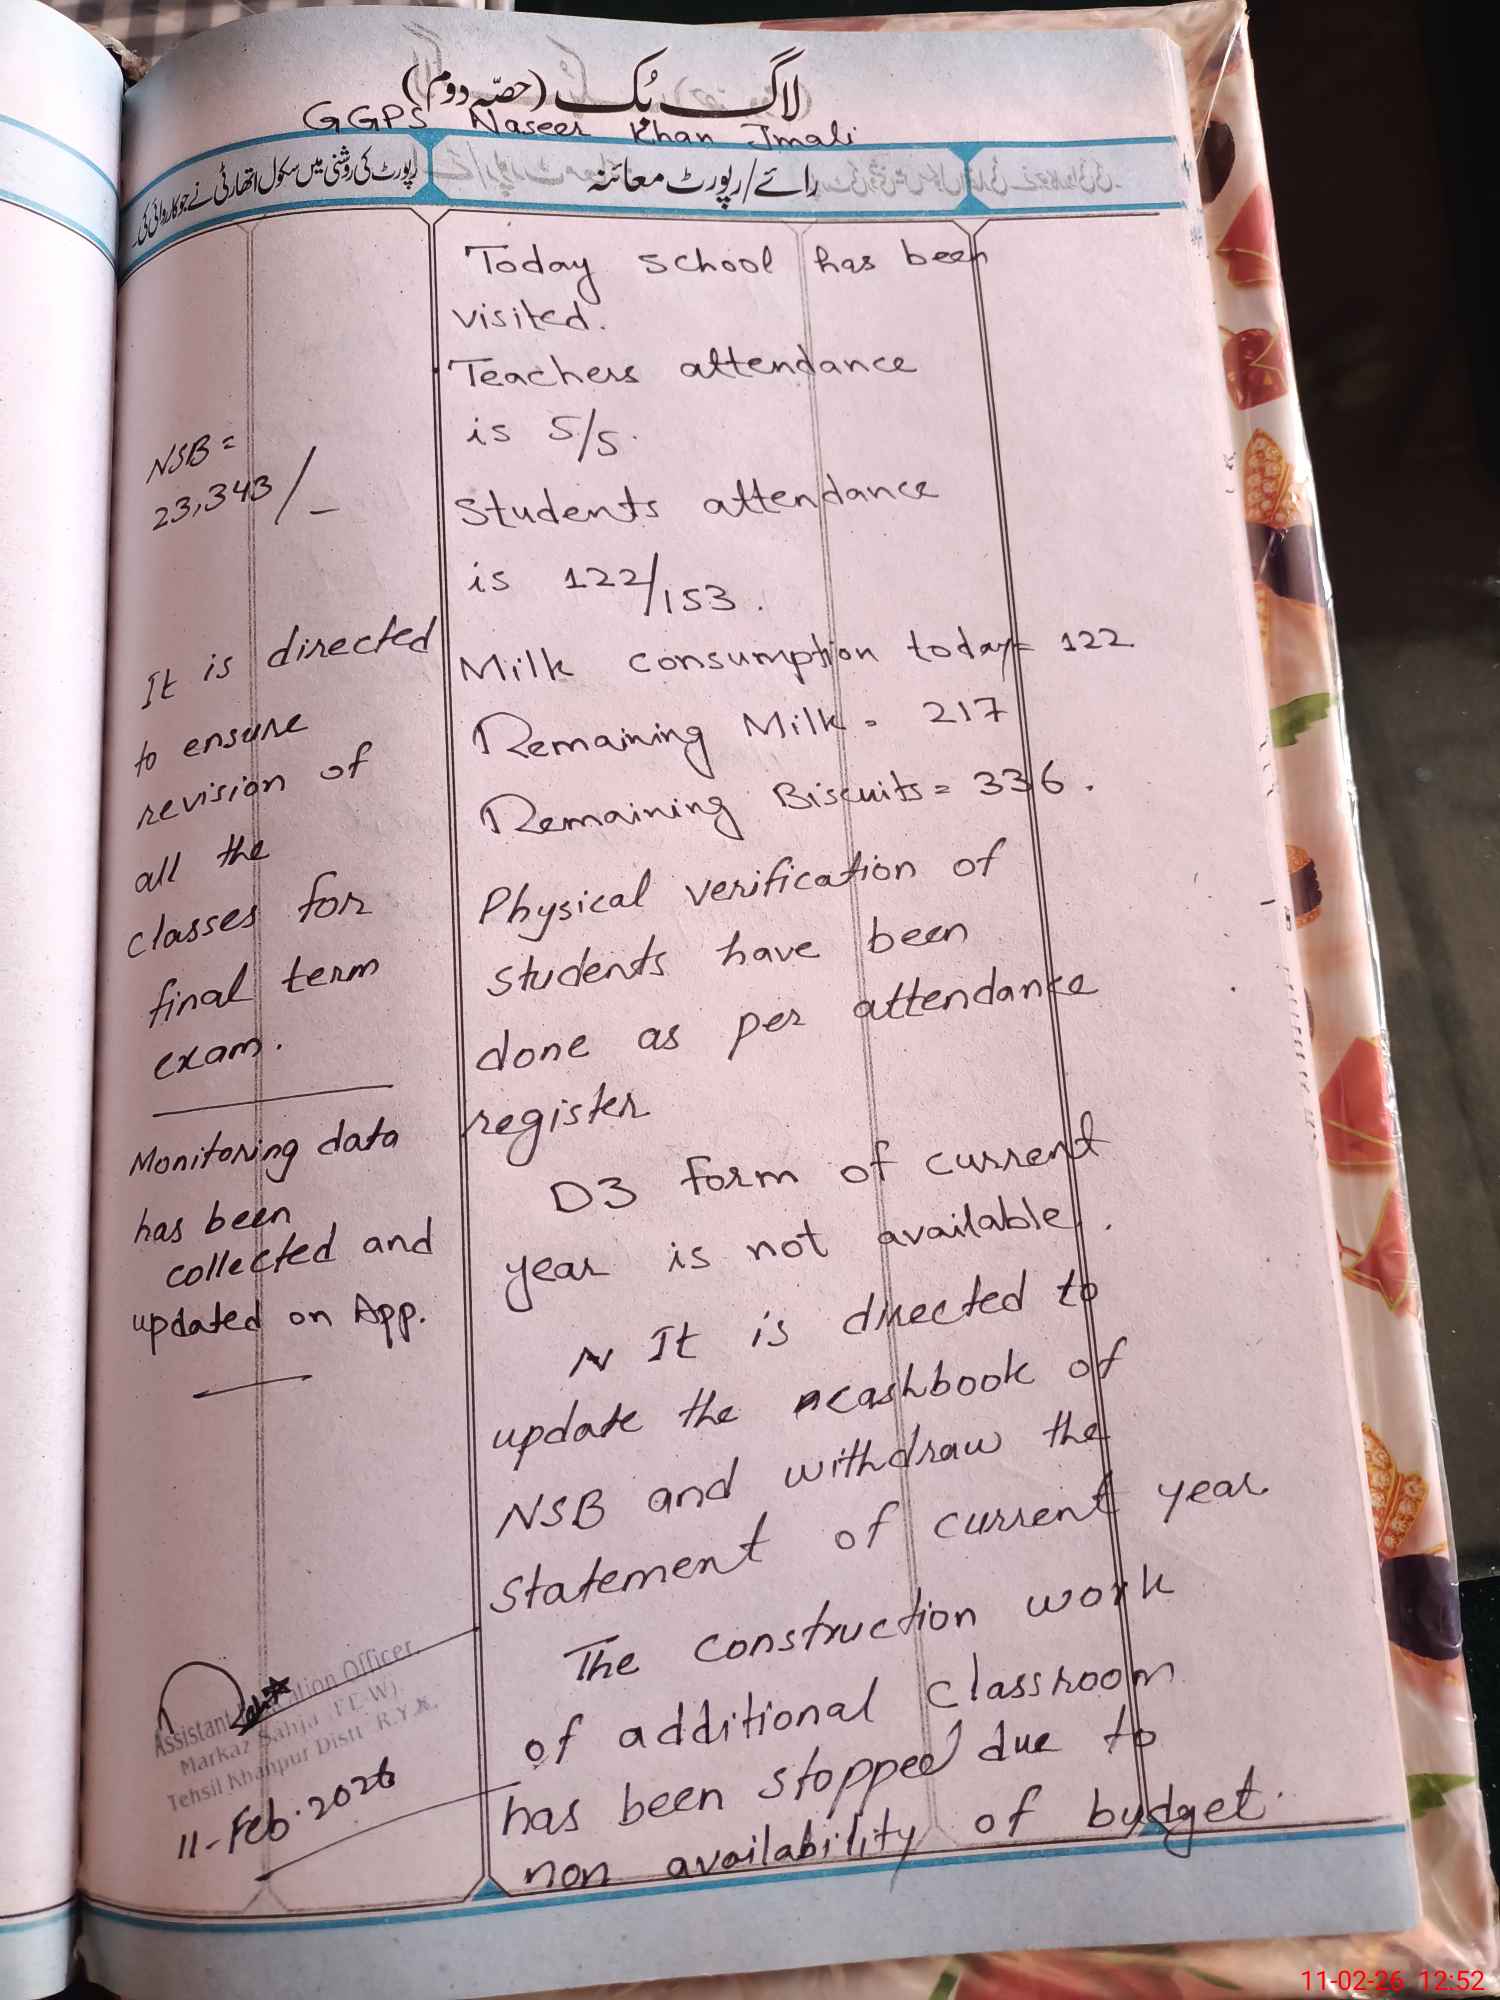 لاگ بُک (حصّہ دوم)
GGPS Naseer Khan Jmali
رائے/رپورٹ معائنہ
رپورٹ کی روشنی میں سکول اتھارٹی نے جو کاروائی کی۔
Today school has been
visited.
Teachers attendance
is 5/5.
Students attendance
is 122/153.
Milk consumption today= 122
Remaining Milk = 217
Remaining Biscuits = 336.
Physical verification of
students have been
done as per attendance
register
D3 form of current
year is not available.
N It is directed to
update the cashbook of
NSB and withdraw the
statement of current year
The construction work
of additional classroom
has been stopped due to
non availability of budget.
NSB =
23,343/-
It is directed
to ensure
revision of
all the
classes for
final term
exam.
Monitoring data
has been
collected and
updated on App.
Assistant Education Officer
Markaz Sahja (EE.W).
Tehsil Khanpur Distt R.Y.K.
11-Feb.2026
11-02-26 12:52